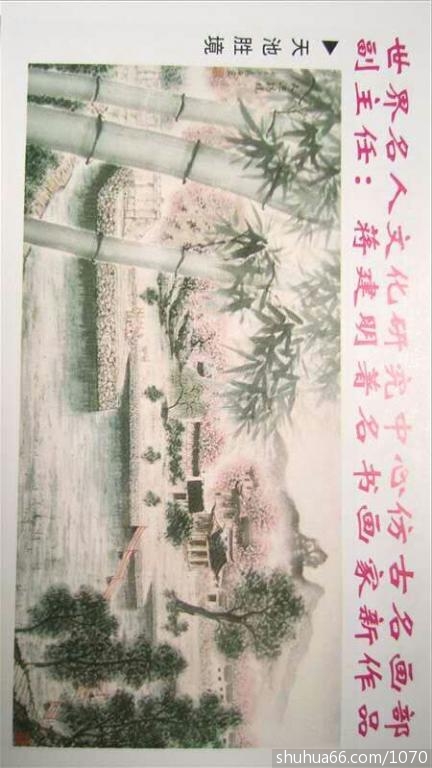 世界名人文化研究中心仿古名画部
副主任：蒋建明著名书画家新作品
▶天池胜境
shuhua66.com/1070